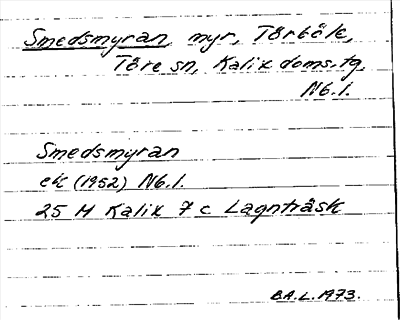 Smedsmyran, myr, Törböle,
Töre sn, Kalix doms.tg.
Nb.l.
Smedsmyran
ek (1952) Nb.l.
25 M Kalix 7 c Lagnträsk
B.A.L. 1973.